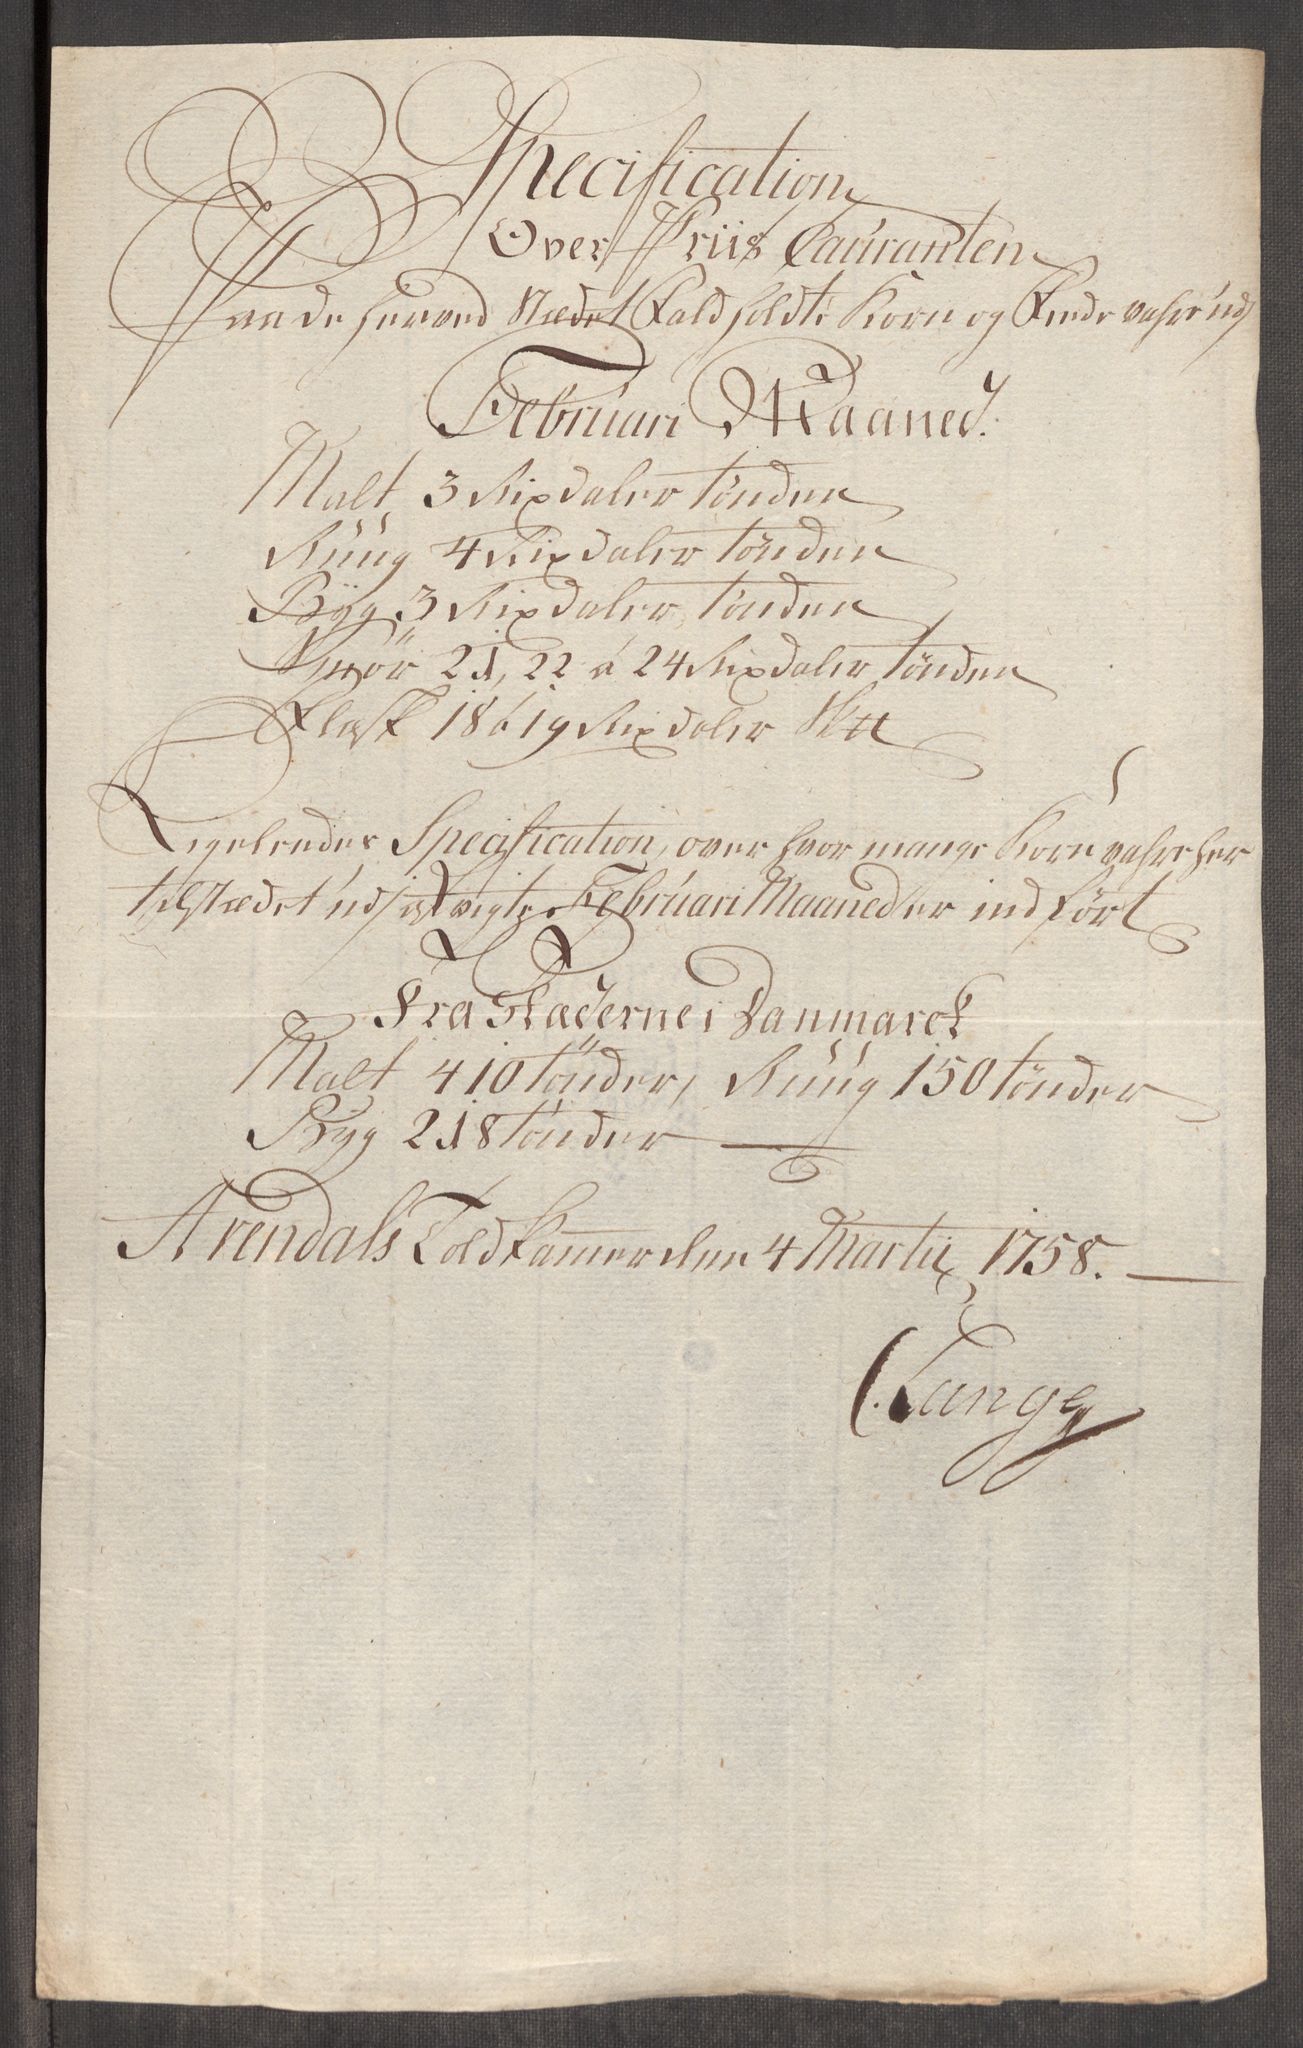 Specification
Over Priis Cauranten
Paa de herved Stædet Faldholdte Korn og Feede vahre udj
Februari Maaned.
Malt 3 Rixdaler tönden
Ruug 4 Rixdaler tönden
Byg 3 Rixdaler tönden
Smör 21, 22 a 24 Rixdaler tönden
Flæsk 18 a 19 Rixdaler Sktt
Ligeleedes Specification, over hvor mange Korn vahre her
til stædet udj Februari Maaned er indfört
Fra Stæderne i Danmarck
Malt 410 tönder, Ruug 150 tönder
Byg 218 tönder
Arendals Toldkammer den 4 Martii 1758.
C. Lange